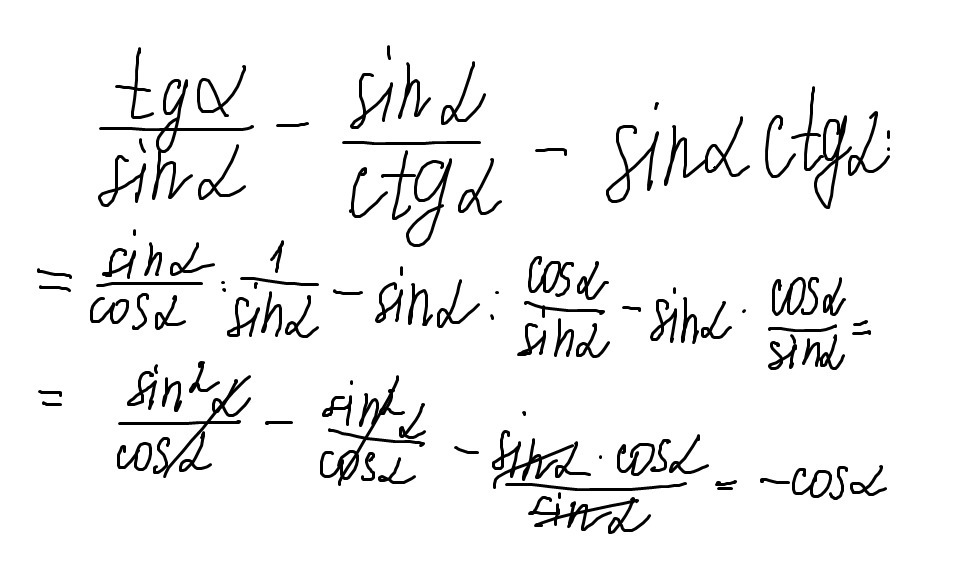 tgα/sinα − sinα/ctgα − sinα ctgα:
= sinα/cosα : 1/sinα − sinα : cosα/sinα − sinα · cosα/sinα =
= sin²α/cosα − sin²α/cosα − sinα · cosα/sinα = −cosα